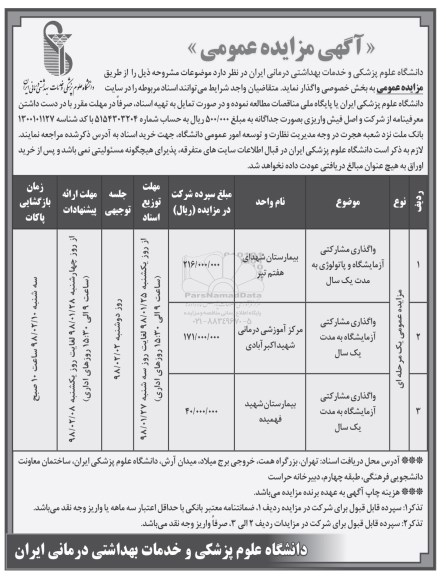 « آگهی مزایده عمومی »
دانشگاه علوم پزشکی و خدمات بهداشتی درمانی ایران
دانشگاه علوم پزشکی و خدمات بهداشتی درمانی ایران در نظر دارد موضوعات مشروحه ذیل را از طریق
مزایده عمومی به بخش خصوصی واگذار نماید. متقاضیان واجد شرایط می‌توانند اسناد مربوطه را در سایت
دانشگاه علوم پزشکی ایران یا پایگاه ملی مناقصات مطالعه نموده و در صورت تمایل به تهیه اسناد، صرفاً در مهلت مقرر با در دست داشتن
معرفینامه از شرکت و اصل فیش واریزی بصورت جداگانه به مبلغ ۵۰۰/۰۰۰ ریال به حساب شماره ۵۱۵۴۳۰۳۲۰۴ با کد شناسه ۱۳۰۰۱۰۱۱۲۷
بانک ملت نزد شعبه هجرت در وجه مدیریت نظارت و توسعه امور عمومی دانشگاه، جهت خرید اسناد به آدرس ذکر شده مراجعه نمایند.
لازم به ذکر است دانشگاه علوم پزشکی ایران در قبال اطلاعات سایت های متفرقه، پذیرای هیچگونه مسئولیتی نمی باشد و پس از خرید
اوراق به هیچ عنوان مبالغ دریافتی عودت داده نخواهد شد.
ردیف
نوع
موضوع
نام واحد
مبلغ سپرده شرکت در مزایده (ریال)
مهلت توزیع اسناد
جلسه توجیهی
مهلت ارائه پیشنهادات
زمان بازگشایی پاکات
مزایده عمومی یک مرحله ای
۱
واگذاری مشارکتی
آزمایشگاه و پاتولوژی به
مدت یک سال
بیمارستان شهدای
هفتم تیر
۲۱۶/۰۰۰/۰۰۰
۲
واگذاری مشارکتی
آزمایشگاه به مدت
یک سال
مرکز آموزشی درمانی
شهید اکبرآبادی
۱۷۱/۰۰۰/۰۰۰
۳
واگذاری مشارکتی
آزمایشگاه به مدت
یک سال
بیمارستان شهید
فهمیده
۴۰/۰۰۰/۰۰۰
از روز یکشنبه ۹۸/۰۱/۲۵ لغایت روز سه شنبه ۹۸/۰۱/۲۷
(ساعت ۹ الی ۱۵:۳۰ روزهای اداری)
روز دوشنبه ۹۸/۰۲/۰۲
از روز چهارشنبه ۹۸/۰۱/۲۸ لغایت روز یکشنبه ۹۸/۰۲/۰۸
(ساعت ۹ الی ۱۵:۳۰ روزهای اداری)
سه شنبه ۹۸/۰۲/۱۰ ساعت ۱۰ صبح
ParsNamadData
۰۲۱-۸۸۳۴۹۶۷۰-۵
*** آدرس محل دریافت اسناد: تهران، بزرگراه همت، خروجی برج میلاد، میدان آرش، دانشگاه علوم پزشکی ایران، ساختمان معاونت
دانشجویی فرهنگی، طبقه چهارم، دبیرخانه حراست
*** هزینه چاپ آگهی به عهده برنده مزایده می‌باشد.
تذکر۱: سپرده قابل قبول برای شرکت در مزایده ردیف ۱، ضمانتنامه معتبر بانکی با حداقل اعتبار سه ماهه یا واریز وجه نقد می‌باشد.
تذکر۲: سپرده قابل قبول برای شرکت در مزایدات ردیف ۲ الی ۳، صرفاً واریز وجه نقد می‌باشد.
دانشگاه علوم پزشکی و خدمات بهداشتی درمانی ایران